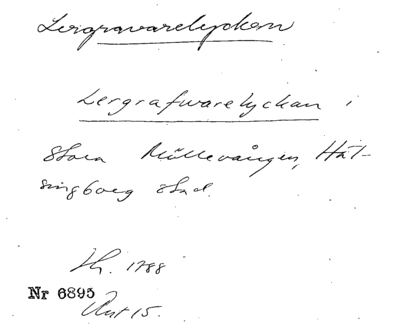 Lergravarelyckan
Lergrafwarelyckan i
Stora Möllevången, Häl-
singborg stad.
1788
Nr 6895
15.